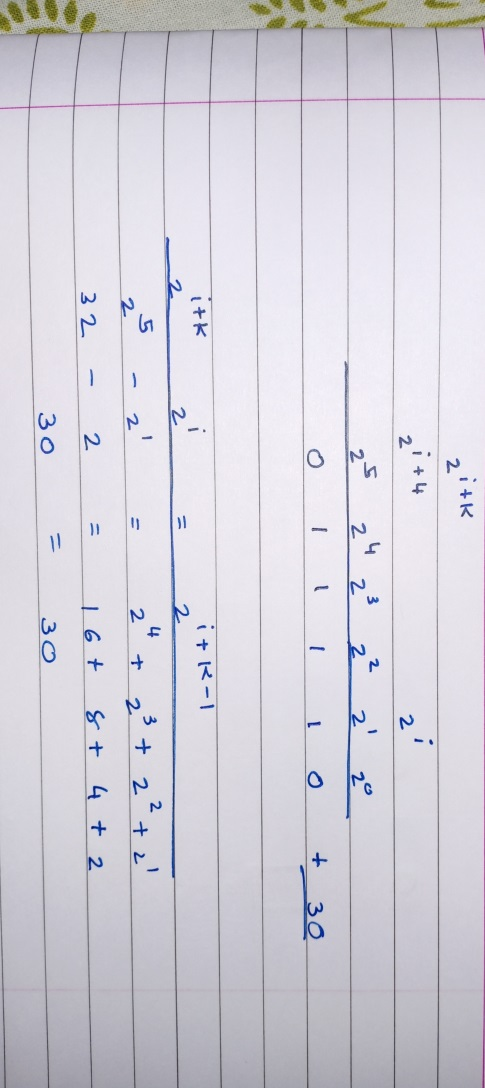 2^i+k
2^i+4 2^i
2^5 2^4 2^3 2^2 2^1 2^0
0 1 1 1 1 0 + 30
2^i+k 2^i = 2^i+k-1
2^5 - 2^1 = 2^4 + 2^3 + 2^2 + 2^1
32 - 2 = 16 + 8 + 4 + 2
30 = 30